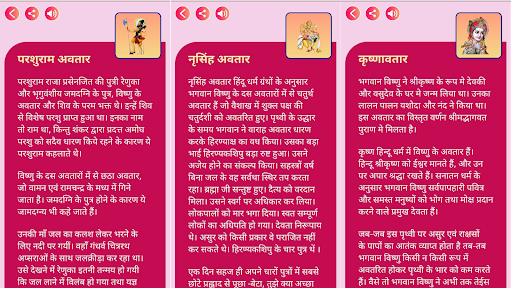 परशुराम अवतार
परशुराम राजा प्रसेनजित की पुत्री रेणुका
और भृगुवंशीय जमदग्नि के पुत्र, विष्णु के
अवतार और शिव के परम भक्त थे। इन्हें शिव
से विशेष परशु प्राप्त हुआ था। इनका नाम
तो राम था, किन्तु शंकर द्वारा प्रदत्त अमोघ
परशु को सदैव धारण किये रहने के कारण ये
परशुराम कहलाते थे।
विष्णु के दस अवतारों में से छठा अवतार,
जो वामन एवं रामचन्द्र के मध्य में गिने
जाता है। जमदग्नि के पुत्र होने के कारण ये
जामदग्न्य भी कहे जाते हैं।
उनकी माँ जल का कलश लेकर भरने के
लिए नदी पर गयीं। वहाँ गंधर्व चित्ररथ
अप्सराओं के साथ जलक्रीड़ा कर रहा था।
उसे देखने में रेणुका इतनी तन्मय हो गयी
कि जल लाने में विलंब हो गया तथा यज्ञ
नृसिंह अवतार
नृसिंह अवतार हिंदू धर्म ग्रंथों के अनुसार
भगवान विष्णु के दस अवतारों में से चतुर्थ
अवतार हैं जो वैशाख में शुक्ल पक्ष की
चतुर्दशी को अवतरित हुए। पृथ्वी के उद्धार
के समय भगवान ने वाराह अवतार धारण
करके हिरण्याक्ष का वध किया। उसका बड़ा
भाई हिरण्यकशिपु बड़ा रुष्ट हुआ। उसने
अजेय होने का संकल्प किया। सहस्त्रों वर्ष
बिना जल के वह सर्वथा स्थिर तप करता
रहा। ब्रह्मा जी सन्तुष्ट हुए। दैत्य को वरदान
मिला। उसने स्वर्ग पर अधिकार कर लिया।
लोकपालों को मार भगा दिया। स्वत सम्पूर्ण
लोकों का अधिपति हो गया। देवता निरूपाय
थे। असुर को किसी प्रकार वे पराजित नहीं
कर सकते थे। हिरण्यकशिपु के चार पुत्र थें ।
एक दिन सहज ही अपने चारों पुत्रों में सबसे
छोटे प्रह्लाद से पूछा -बेटा, तुझे क्या अच्छा
कृष्णावतार
भगवान विष्णु ने श्रीकृष्ण के रूप में देवकी
और वसुदेव के घर में जन्म लिया था। उनका
लालन पालन यशोदा और नंद ने किया था।
इस अवतार का विस्तृत वर्णन श्रीमद्भागवत
पुराण मे मिलता है।
कृष्ण हिन्दू धर्म में विष्णु के अवतार हैं।
हिन्दू श्रीकृष्ण को ईश्वर मानते हैं, और उन
पर अपार श्रद्धा रखते हैं। सनातन धर्म के
अनुसार भगवान विष्णु सर्वपापहारी पवित्र
और समस्त मनुष्यों को भोग तथा मोक्ष प्रदान
करने वाले प्रमुख देवता हैं।
जब-जब इस पृथ्वी पर असुर एवं राक्षसों
के पापों का आतंक व्याप्त होता है तब-तब
भगवान विष्णु किसी न किसी रूप में
अवतरित होकर पृथ्वी के भार को कम करते
हैं। वैसे तो भगवान विष्णु ने अभी तक तेईस